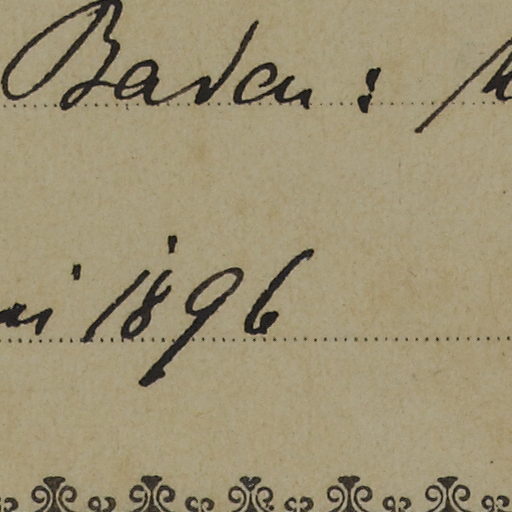 Baden:
1896